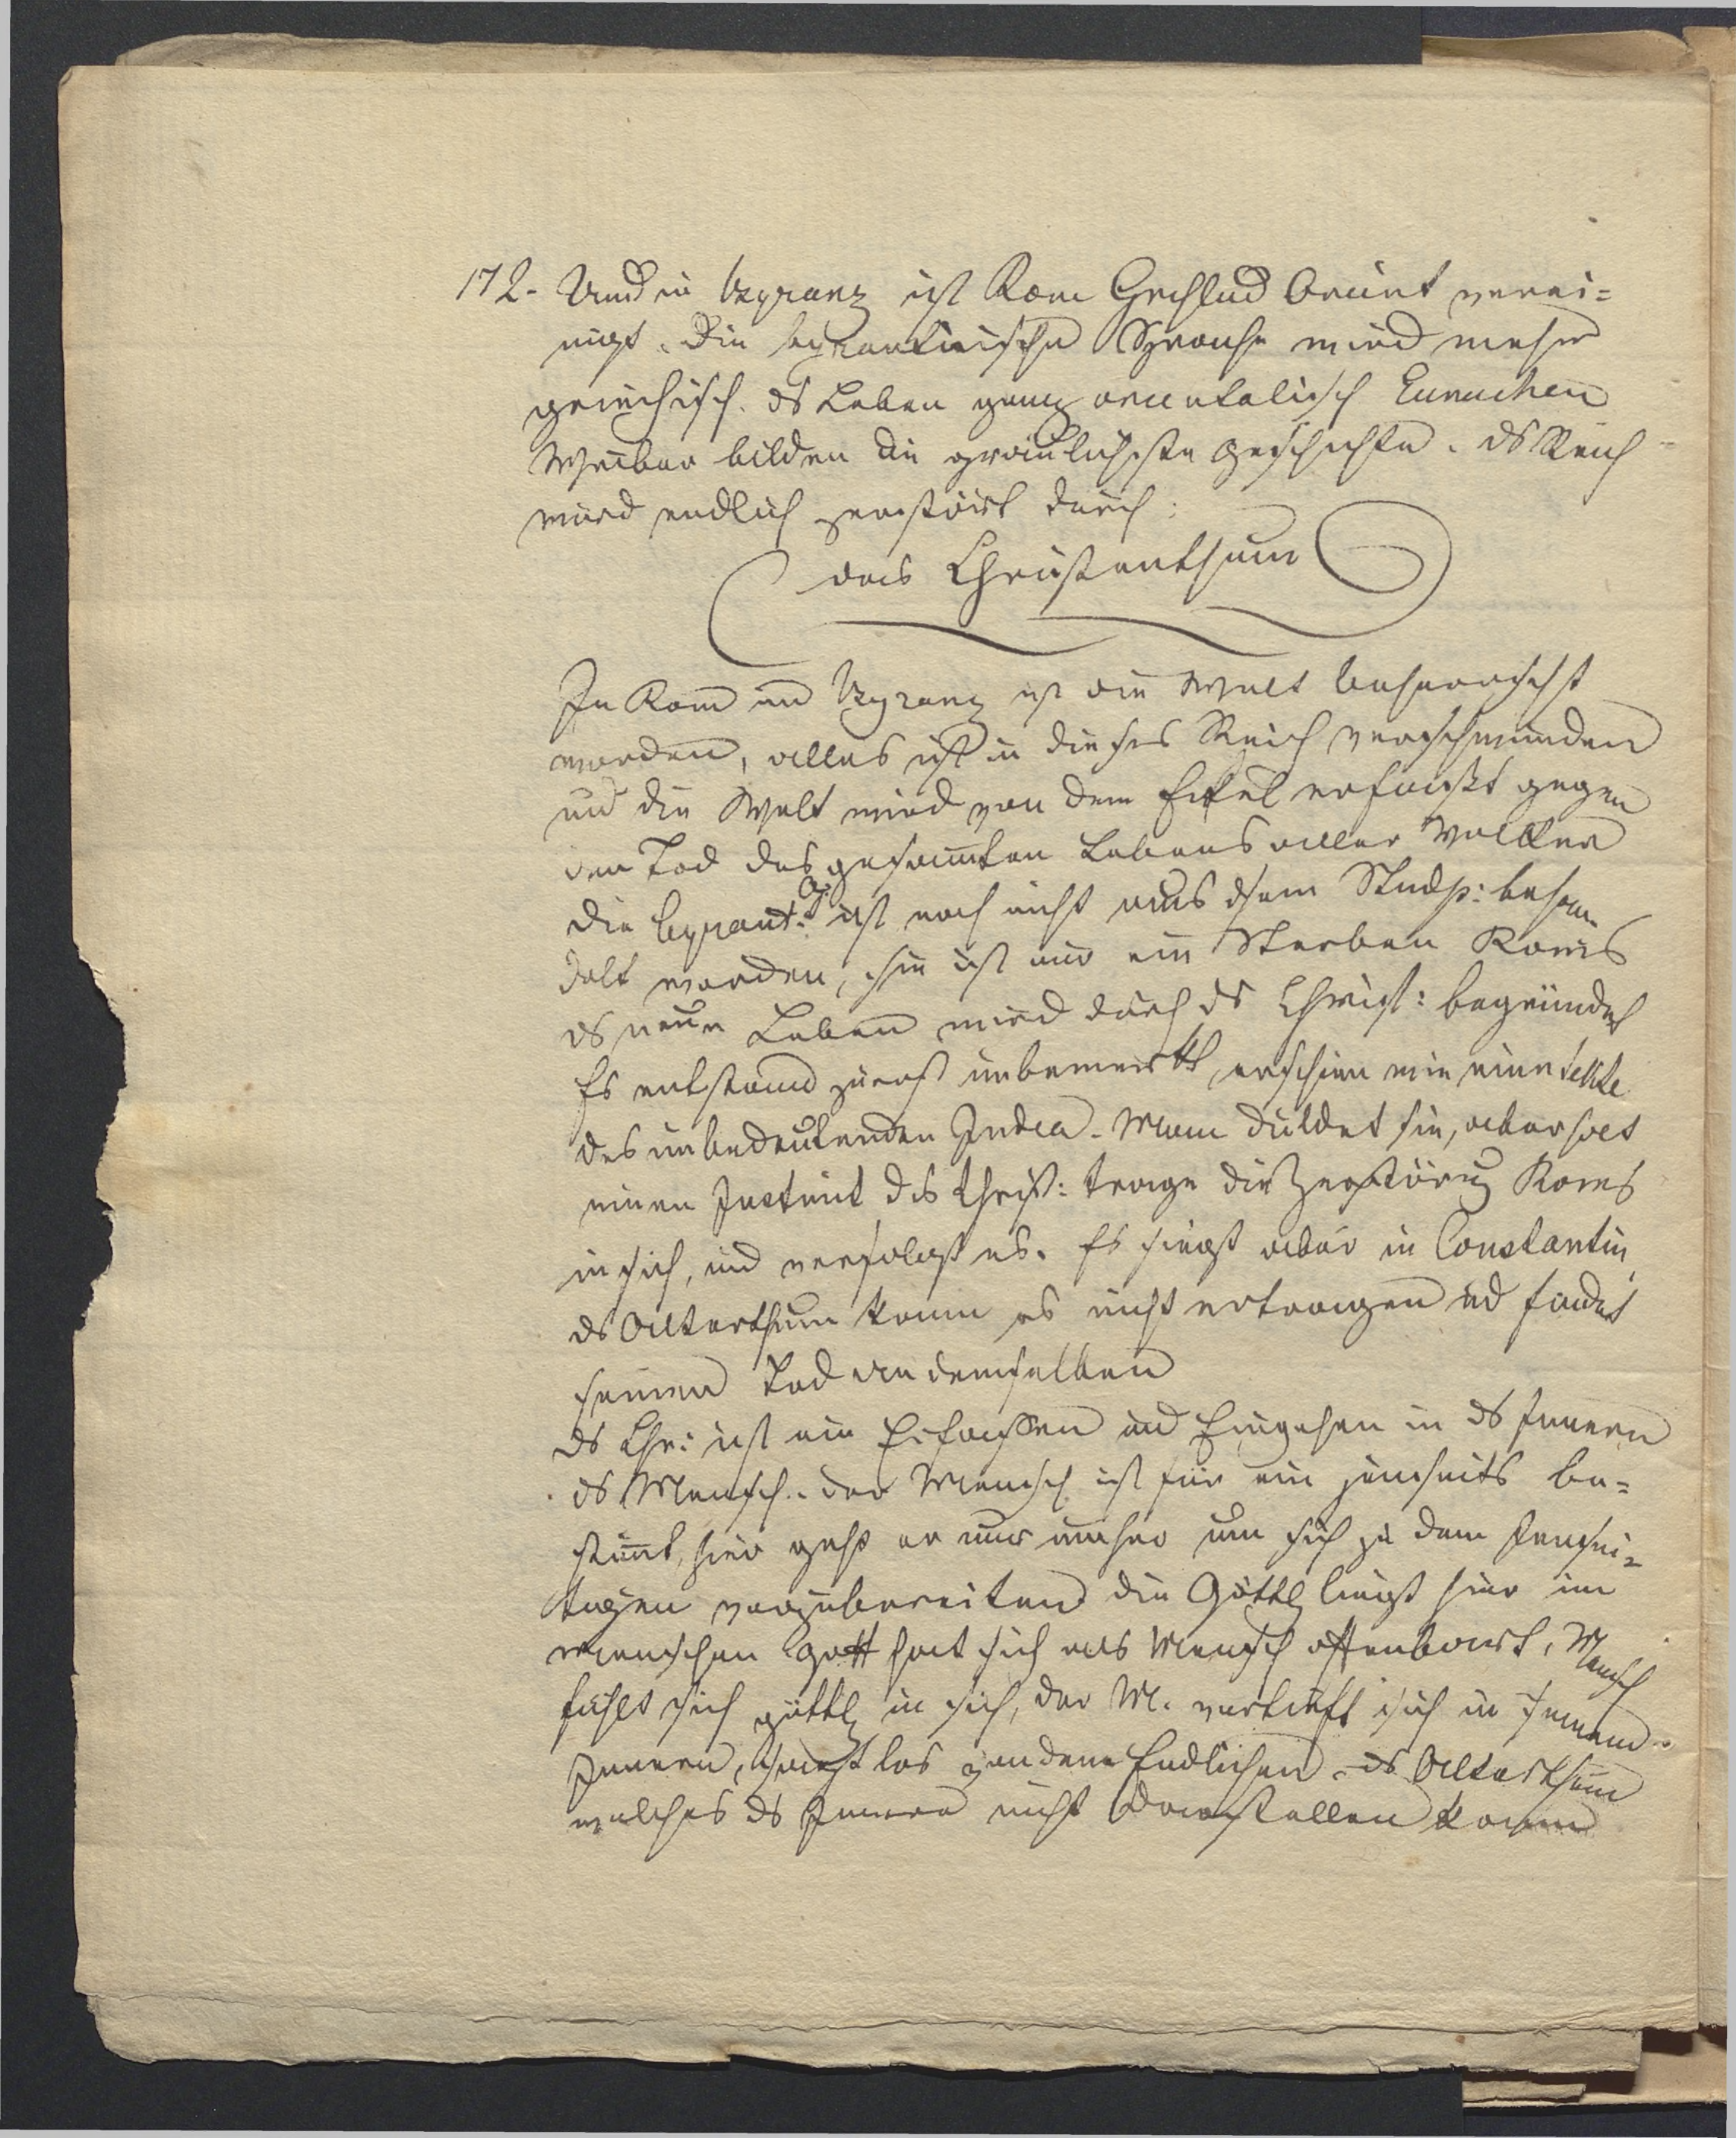 172. Und in Byzanz ist Rom Grchlnd Orient verei=
nigt. Die byzantinische Sprache wird mehr
griechisch. ds Leben ganz orientalisch Eunuchen
Weiber bilden die gräulichste Geschichte. ds Reich
wird endlich zerstört durch:
das Christenthum
In Rom und Byzanz ist die Welt beherrscht
worden, alles ist in dieses Reich verschwunden
und die Welt wird von dem Eckel erfaßt gegen
den Tod des gesammten Lebens aller Völker
die byzant: G. ist noch nicht aus dsem Stndp: behan-
delt worden, sie ist nur ein Sterben Roms
ds neue Leben wird durch ds Christ: begründet
Es entstand zuerst unbemerkt, erschien wie eine Sekte
des unbedeutenden Judea. Man duldet sie, aber hat
einen Instinct das Christ: trage die Zerstörung Roms
in sich, und verfolgt es. Es siegt aber in Constantin
ds Alterthum kann es nicht ertragen und findet
seinen Tod in demselben
ds Chr: ist ein Erfassen und Eingehen in ds Innere
ds Mensch. der Mensch ist für ein jenseits be=
stimmt, hier geht er nur umher um sich zu dem jensei=
tigen vorzubereiten die Göttl liegt hier im
Menschen Gott hat sich als Mensch offenbart, Mensch
fühlt sich göttl in sich, der M. vertieft sich in seinem
Innern, macht los von dem Endlichen. ds Alterthum
welches ds Innere nicht darstellen kann